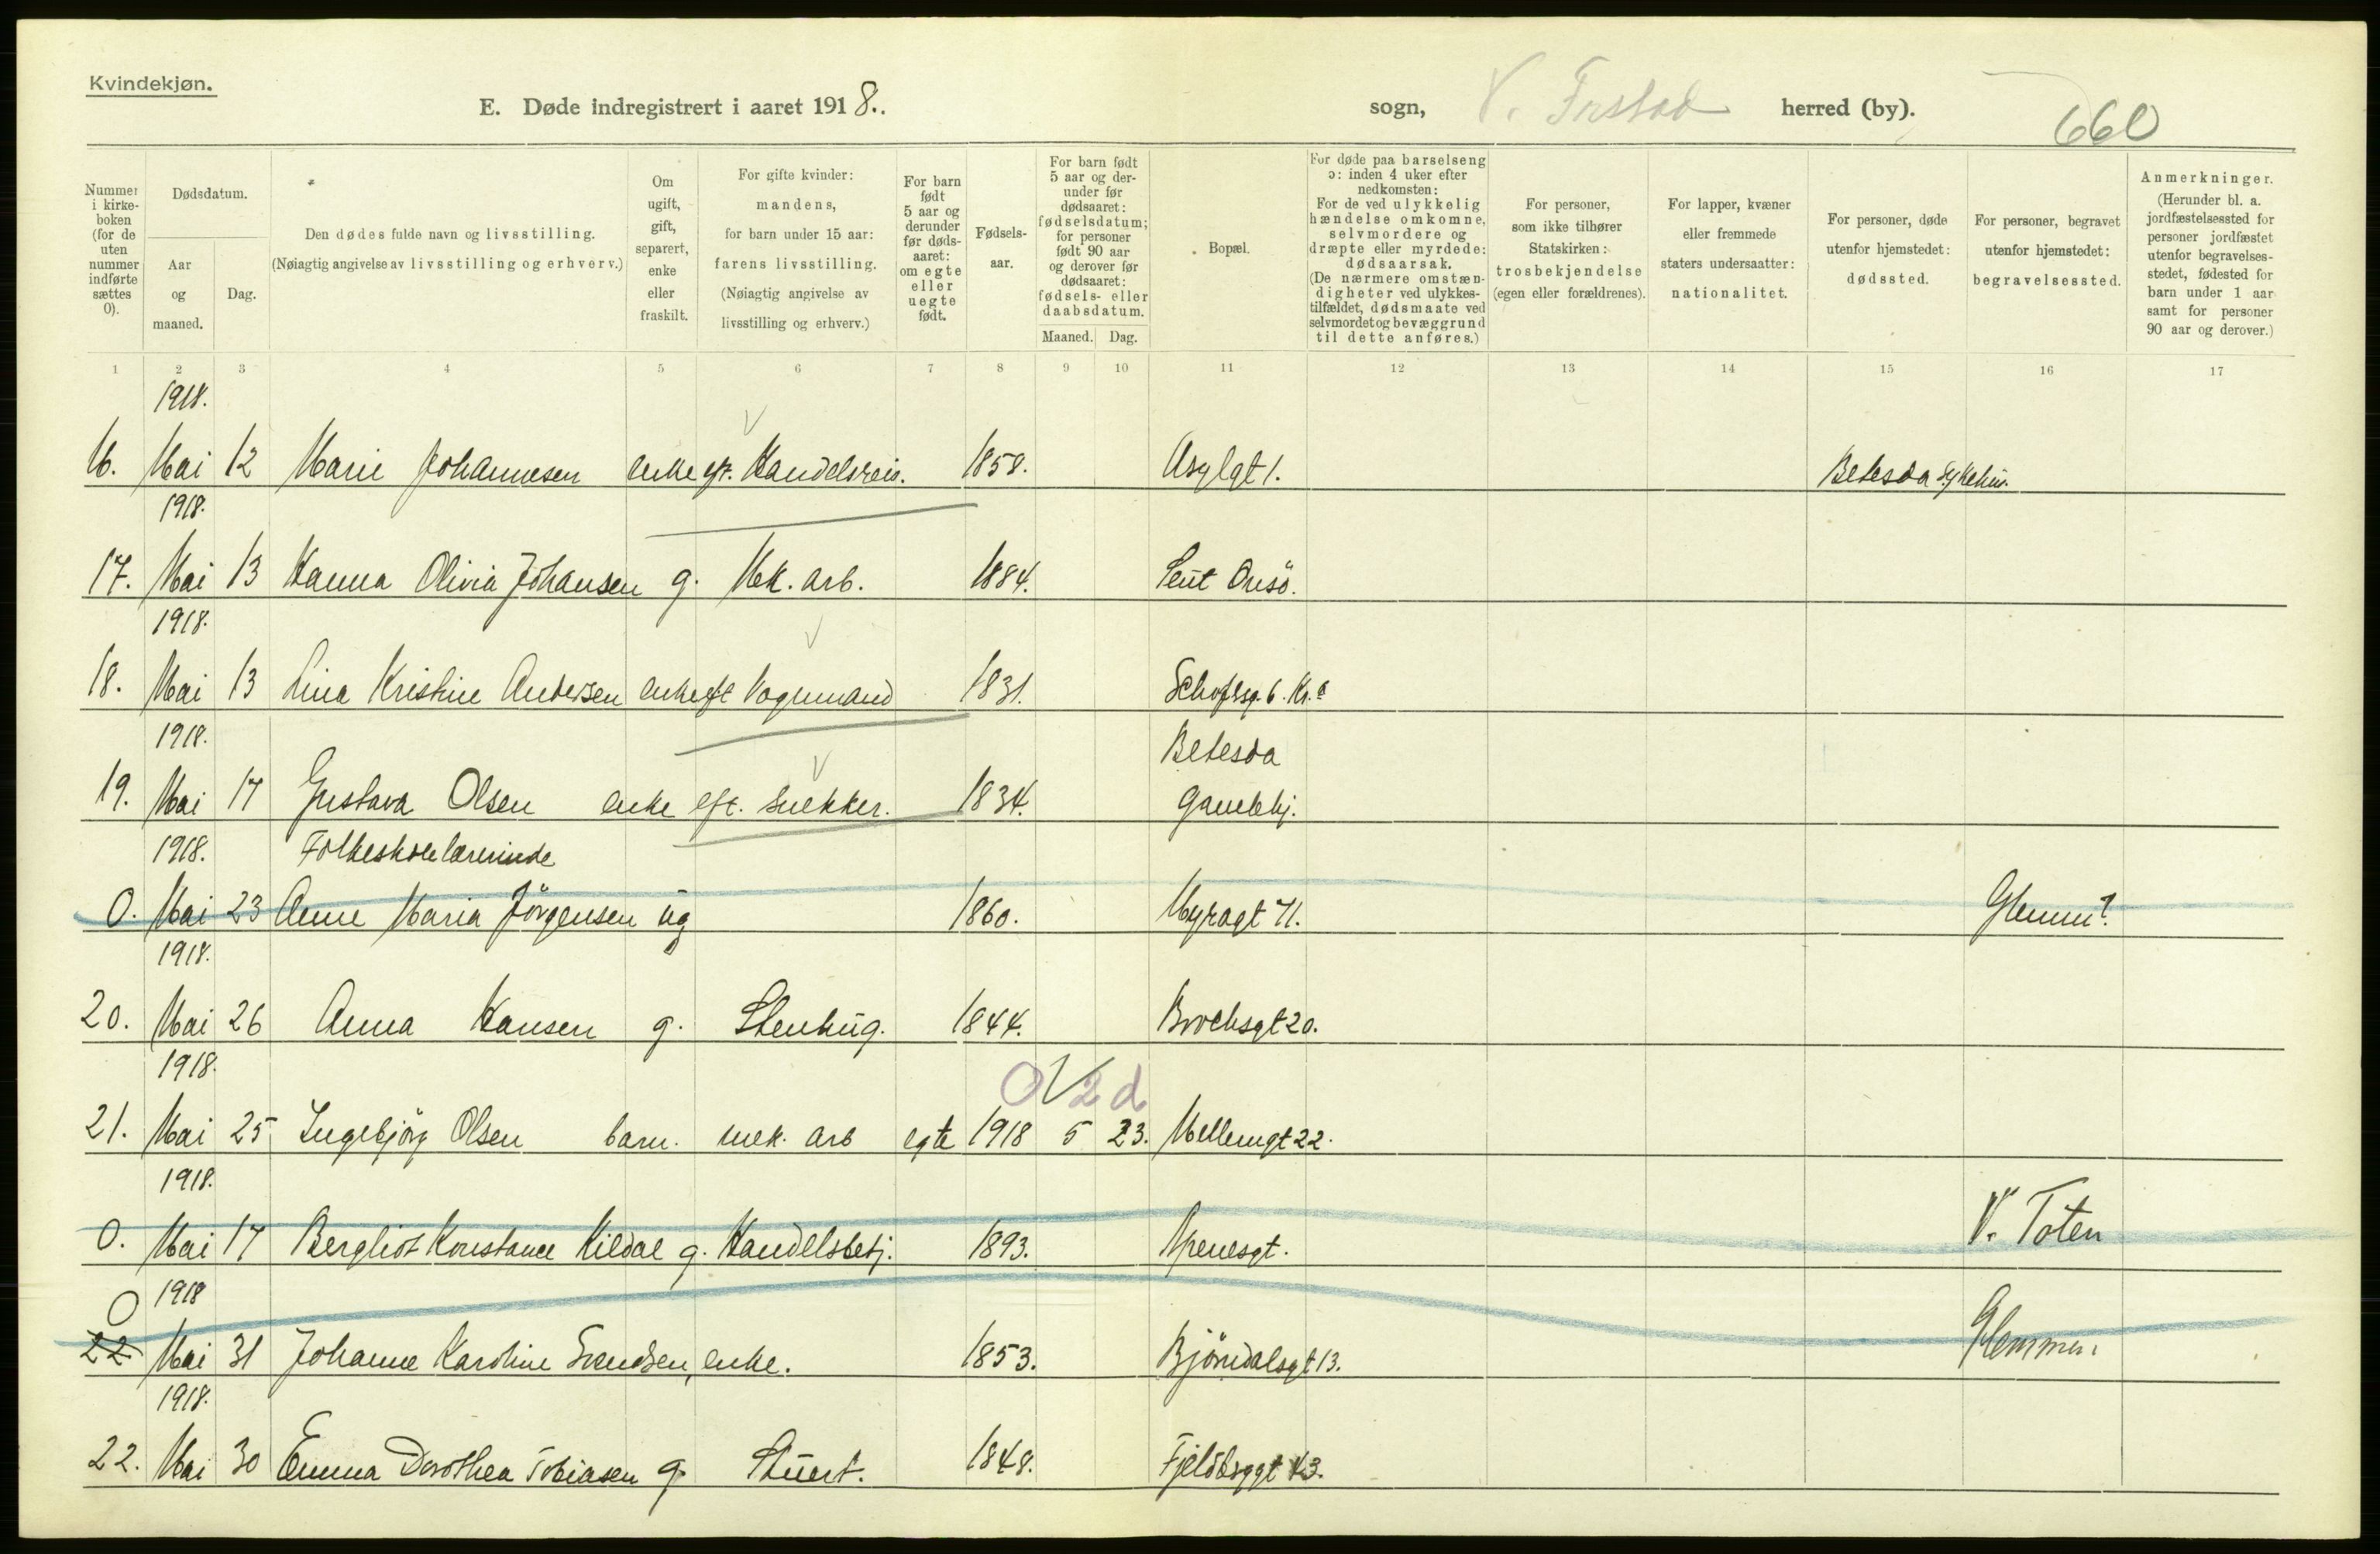 Kvindekjøn.
E. Døde indregistrert i aaret 1918.
sogn, V. Frstad herred (by).
660
Nummer i kirkeboken (for de uten nummer indførte sættes 0).
Dødsdatum.
Aar og maaned.
Dag.
Den dødes fulde navn og livsstilling.
(Nøiagtig angivelse av livsstilling og erhverv.)
Om ugift, gift, separert, enke eller fraskilt.
For gifte kvinder: mandens, for barn under 15 aar: farens livsstilling. (Nøiagtig angivelse av livsstilling og erhverv.)
For barn født 5 aar og derunder før dødsaaret: om egte eller uegte født.
Fødselsaar.
For barn født 5 aar og derunder før dødsaaret: fødselsdatum; for personer født 90 aar og derover før dødsaaret: fødsels- eller daabsdatum.
Maaned. Dag.
Bopæl.
For døde paa barselseng ɔ: inden 4 uker efter nedkomsten: For de ved ulykkelig hændelse omkomne, selvmordere og dræpte eller myrdede: dødsaarsak. (De nærmere omstændigheter ved ulykkestilfældet, dødsmaate ved selvmordet og bevæggrund til dette anføres.)
For personer, som ikke tilhører Statskirken: trosbekjendelse (egen eller forældrenes).
For lapper, kvæner eller fremmede staters undersaatter: nationalitet.
For personer, døde utenfor hjemstedet: dødssted.
For personer, begravet utenfor hjemstedet: begravelsessted.
Anmerkninger. (Herunder bl. a. jordfæstelsessted for personer jordfæstet utenfor begravelsesstedet, fødested for barn under 1 aar samt for personer 90 aar og derover.)
1 2 3 4 5 6 7 8 9 10 11 12 13 14 15 16 17
1918.
16. Mai 12 Marie Johannesen enke eft. Handelsreis. 1858. Asylgt 1. Betesda Sykehus.
1918.
17. Mai 13 Hanna Olivia Johansen g. Mek. arb. 1884. Lent Onsö.
1918.
18. Mai 13 Lina Kristine Andersen enke eft Vognmand 1831.
1918.
Betesda
19. Mai 17 Gustava Olsen enke eft. Snekker. 1834. Gamlebj.
1918. Folkeskolelærerinde
0. Mai 23 Anne Maria Jörgensen ug 1860. Myragt 71. Glemm
1918.
20. Mai 26 Anna Hansen g. Stenhug. 1844. Brochsgt 20.
1918.
0 2 d
21. Mai 25 Ingebjörg Olsen barn. mek. arb egte 1918 5 23. Mellemgt 22.
1918.
0. Mai 17 Bergliot Konstance Kildal g. Handelsbetj. 1893. Apenesgt. V. Toten
0 1918
22 Mai 31 Johanne Karoline Svendsen, enke. 1853. Bjöndalsgt 13. Glemmen
1918.
22. Mai 30 Emma Dorothea Tobiasen g. Stuert. 1848. Fjeldbyggt 43.